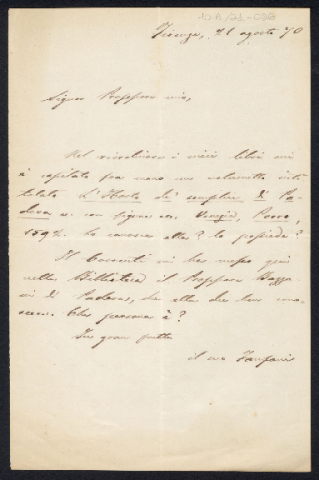 Firenze, 21 agosto 70
Signor Professore mio,
Nel rivoltare i miei libri mi
è capitato fra mano un volumetto inti-
tolato L'Horto de' semplici di Pa-
dova ec. con figure ec. Venezia, Porro,
1592. lo conosce ella? lo possiede?
Il mi ha messo qui
nella Biblioteca il Professore
di Padova, che ella dee ben cono-
scere. Che persona è?
In gran fretta
il suo Tanfani